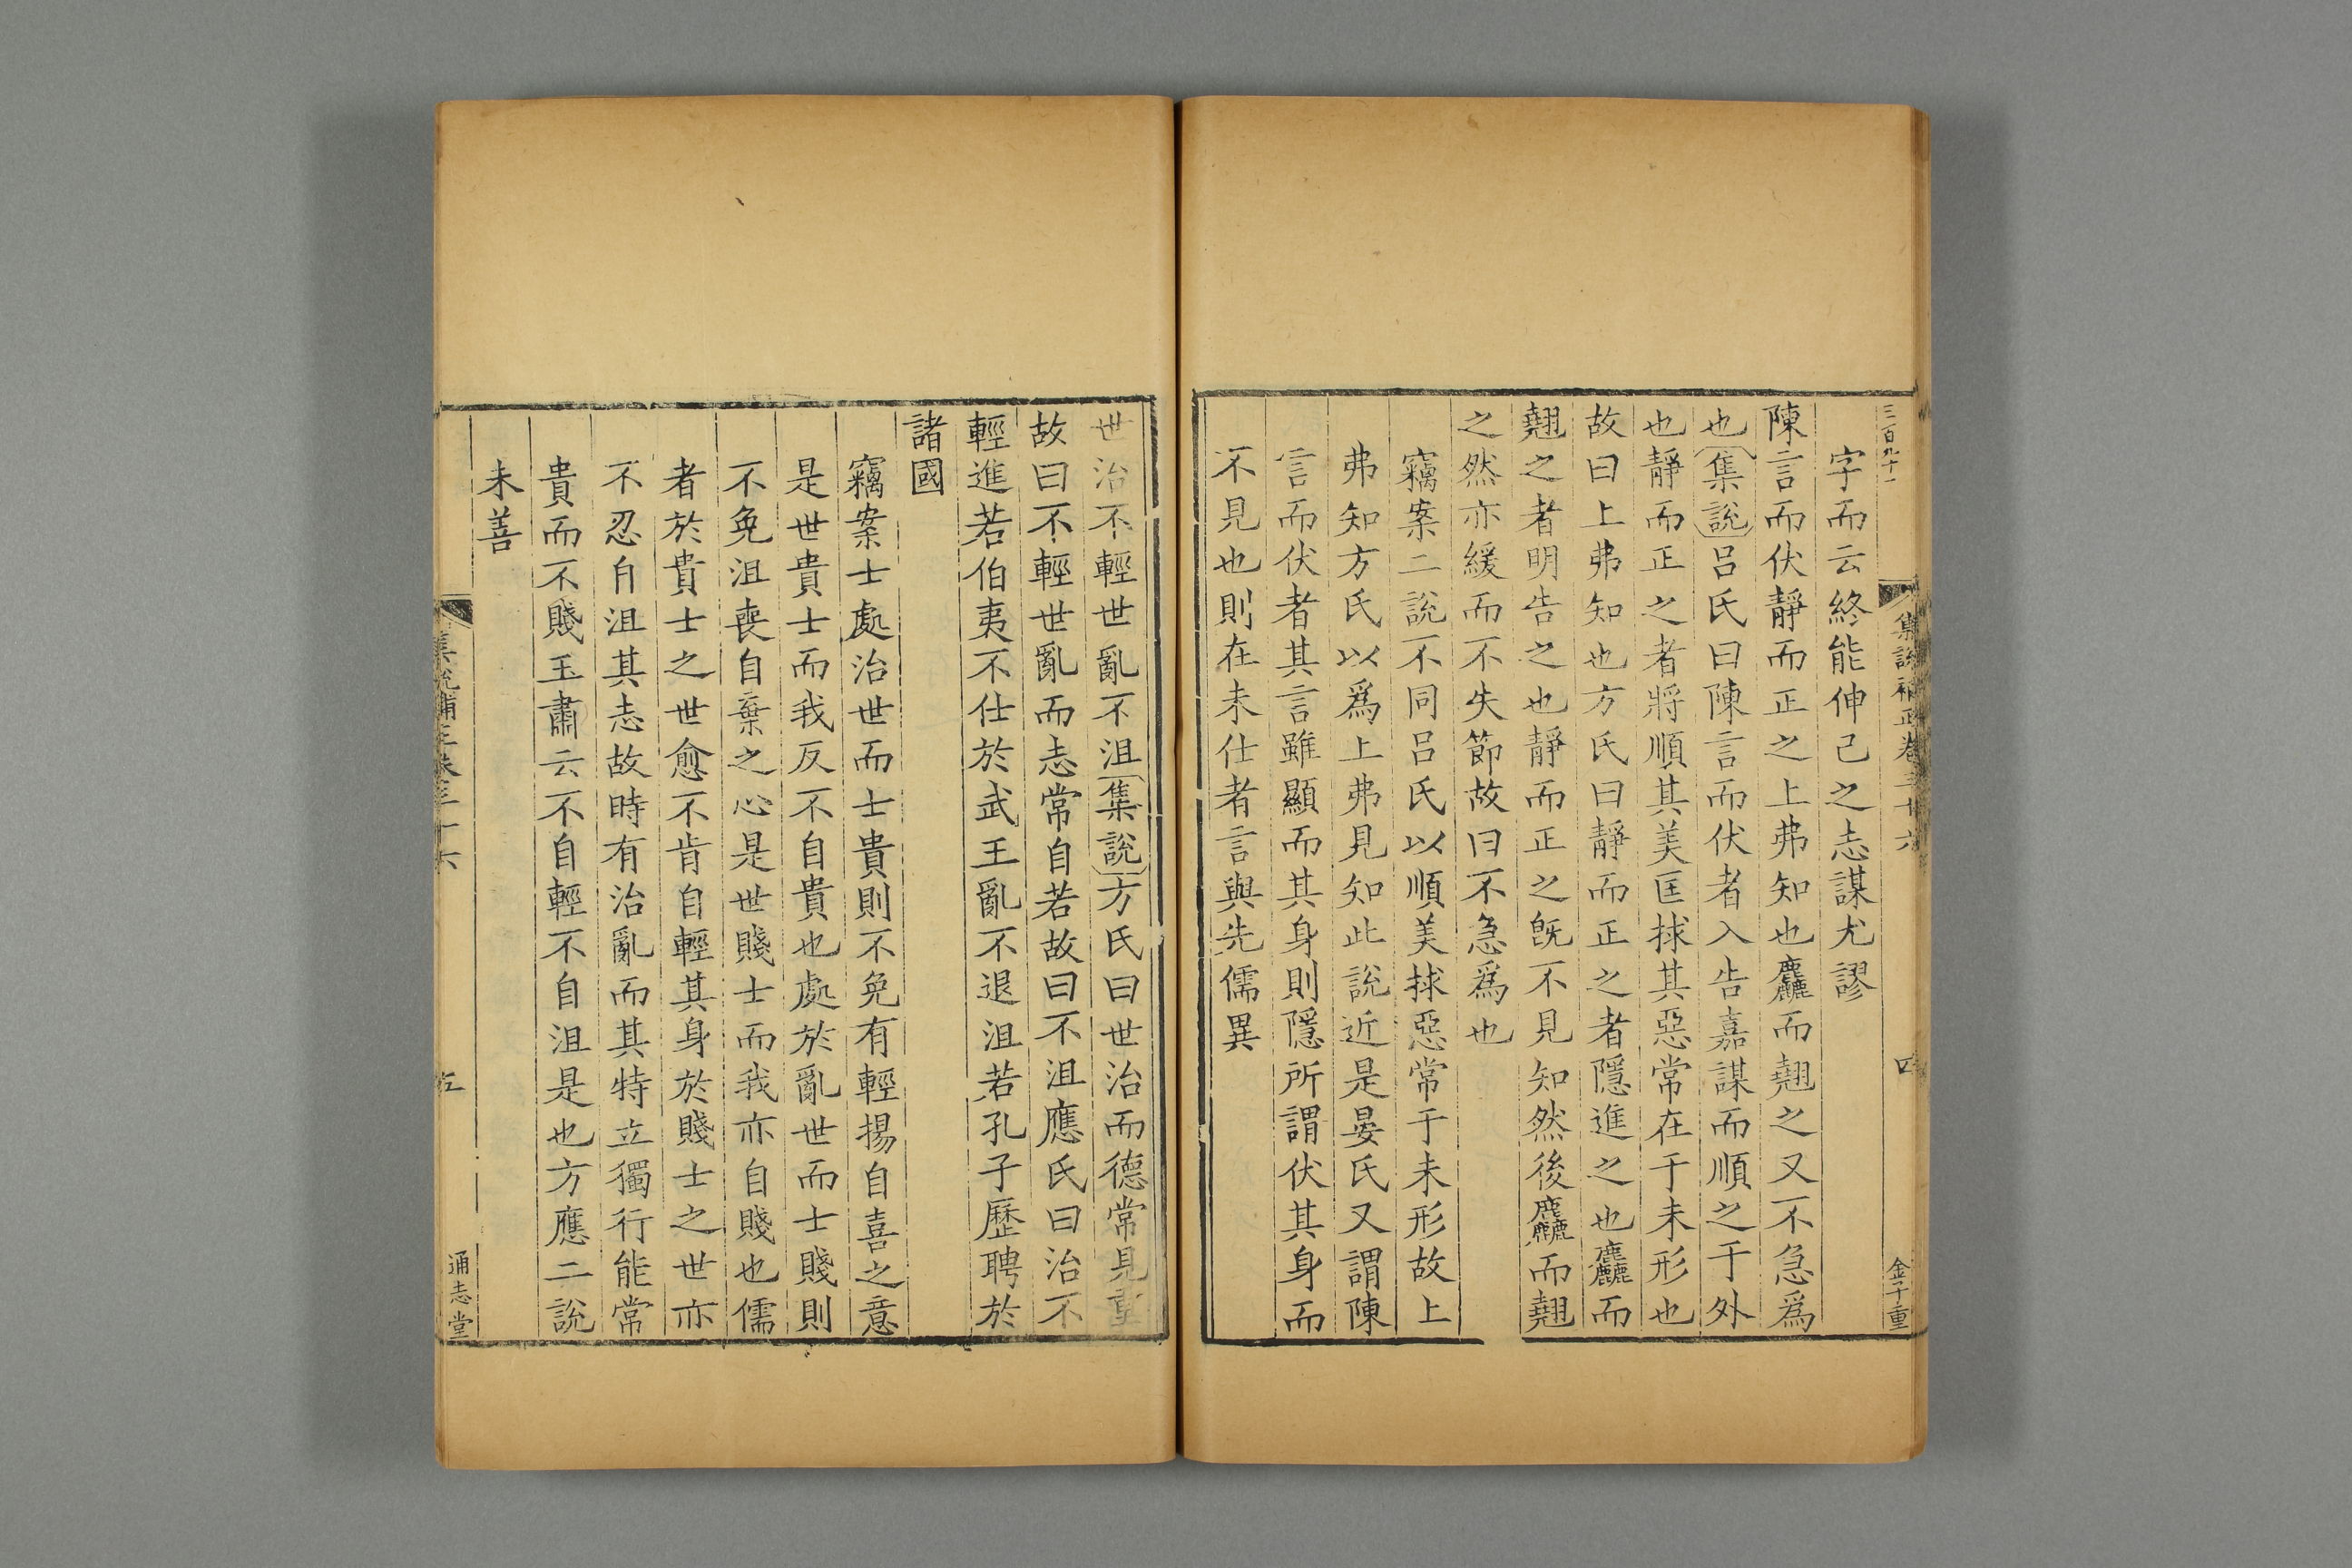 三百九十一
集說補正卷三十六
四
金子重
字而云終能伸己之志謀尤謬
陳言而伏靜而正之上弗知也麤而翹之又不急爲
也集說呂氏曰陳言而伏者入告嘉謀而順之于外
也靜而正之者將順其美匡捄其惡常在于未形也
故曰上弗知也方氏曰靜而正之者隱進之也麤而
翹之者明告之也靜而正之旣不見知然後麤而翹
之然亦緩而不失節故曰不急爲也
竊案二說不同呂氏以順美捄惡常于未形故上
弗知方氏以爲上弗見知此說近是晏氏又謂陳
言而伏者其言雖顯而其身則隱所謂伏其身而
不見也則在未仕者言與先儒異
世治不輕世亂不沮集說方氏曰世治而德常見重
故曰不輕世亂而志常自若故曰不沮應氏曰治不
輕進若伯夷不仕於武王亂不退沮若孔子歷聘於
諸國
竊案士處治世而士貴則不免有輕揚自喜之意
是世貴士而我反不自貴也處於亂世而士賤則
不免沮喪自棄之心是世賤士而我亦自賤也儒
者於貴士之世愈不肯自輕其身於賤士之世亦
不忍自沮其志故時有治亂而其特立獨行能常
貴而不賤王肅云不自輕不自沮是也方應二說
未善
集說補正卷三十六
五
通志堂